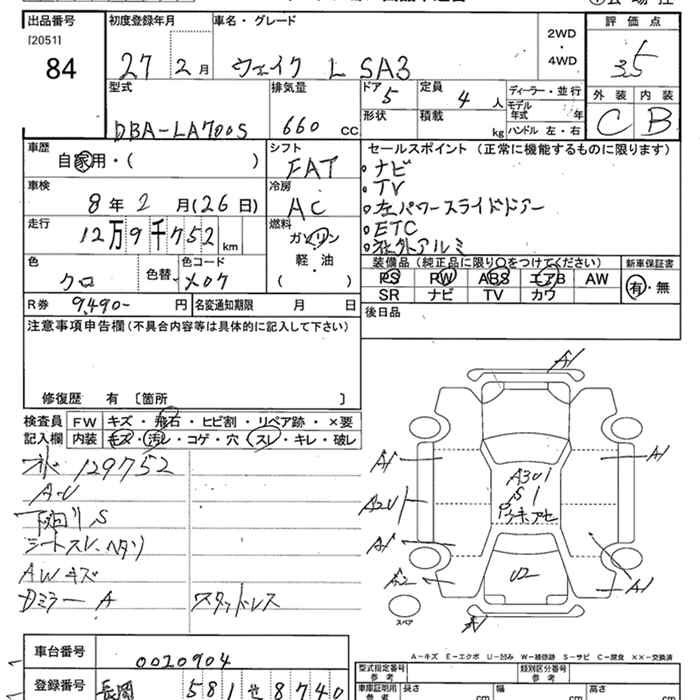 出品番号 初度登録年月 車名・グレード 2WD・4WD 評価点
[2051]
84 27 2月 ウェイク L SA3 3.5
型式 排気量 ドア 5 定員 4人 ディーラー・並行 外装 内装
モデル年式 年
DBA-LA700S 660 CC 形状 積載 kg ハンドル 左・右 C B
車歴 シフト セールスポイント (正常に機能するものに限ります)
自家用・( ) FAT ・ナビ
車検 冷房 ・TV
8年2月(26日) AC ・左パワースライドドアー
走行 燃料 ・ETC
12万9千752km ガソリン ・社外アルミ
軽・油 装備品 (純正品に限り○をつけてください) 新車保証書
色 色替 色コード ( ) PS PW ABS エアB AW 有・無
クロ X07 SR ナビ TV カワ
R券 9,490-円 名変通知期限 月 日 後日品
注意事項申告欄 (不具合内容等は具体的に記入して下さい)
修復歴 有 〔箇所 〕
検査員 FW キズ・飛石・ヒビ割・リペア跡・×要
記入欄 内装 キズ・汚レ・コゲ・穴・スレ・キレ・破レ
129752
A-U
下回りS
シートスレ・ヘタリ
AWキズ
Dミラー A スタッドレス
A1
A1 A1
A2U A301
S1
A1
A2 U2 A1
スペア
A-キズ E-エクボ U-凹み W-補修跡 S-サビ C-腐食 ××-交換済
車台番号 0020904 型式指定番号 参考 類別区分番号 参考
登録番号 長岡 581 せ 8740 車庫証明用 参考 長さ cm 幅 cm 高さ cm